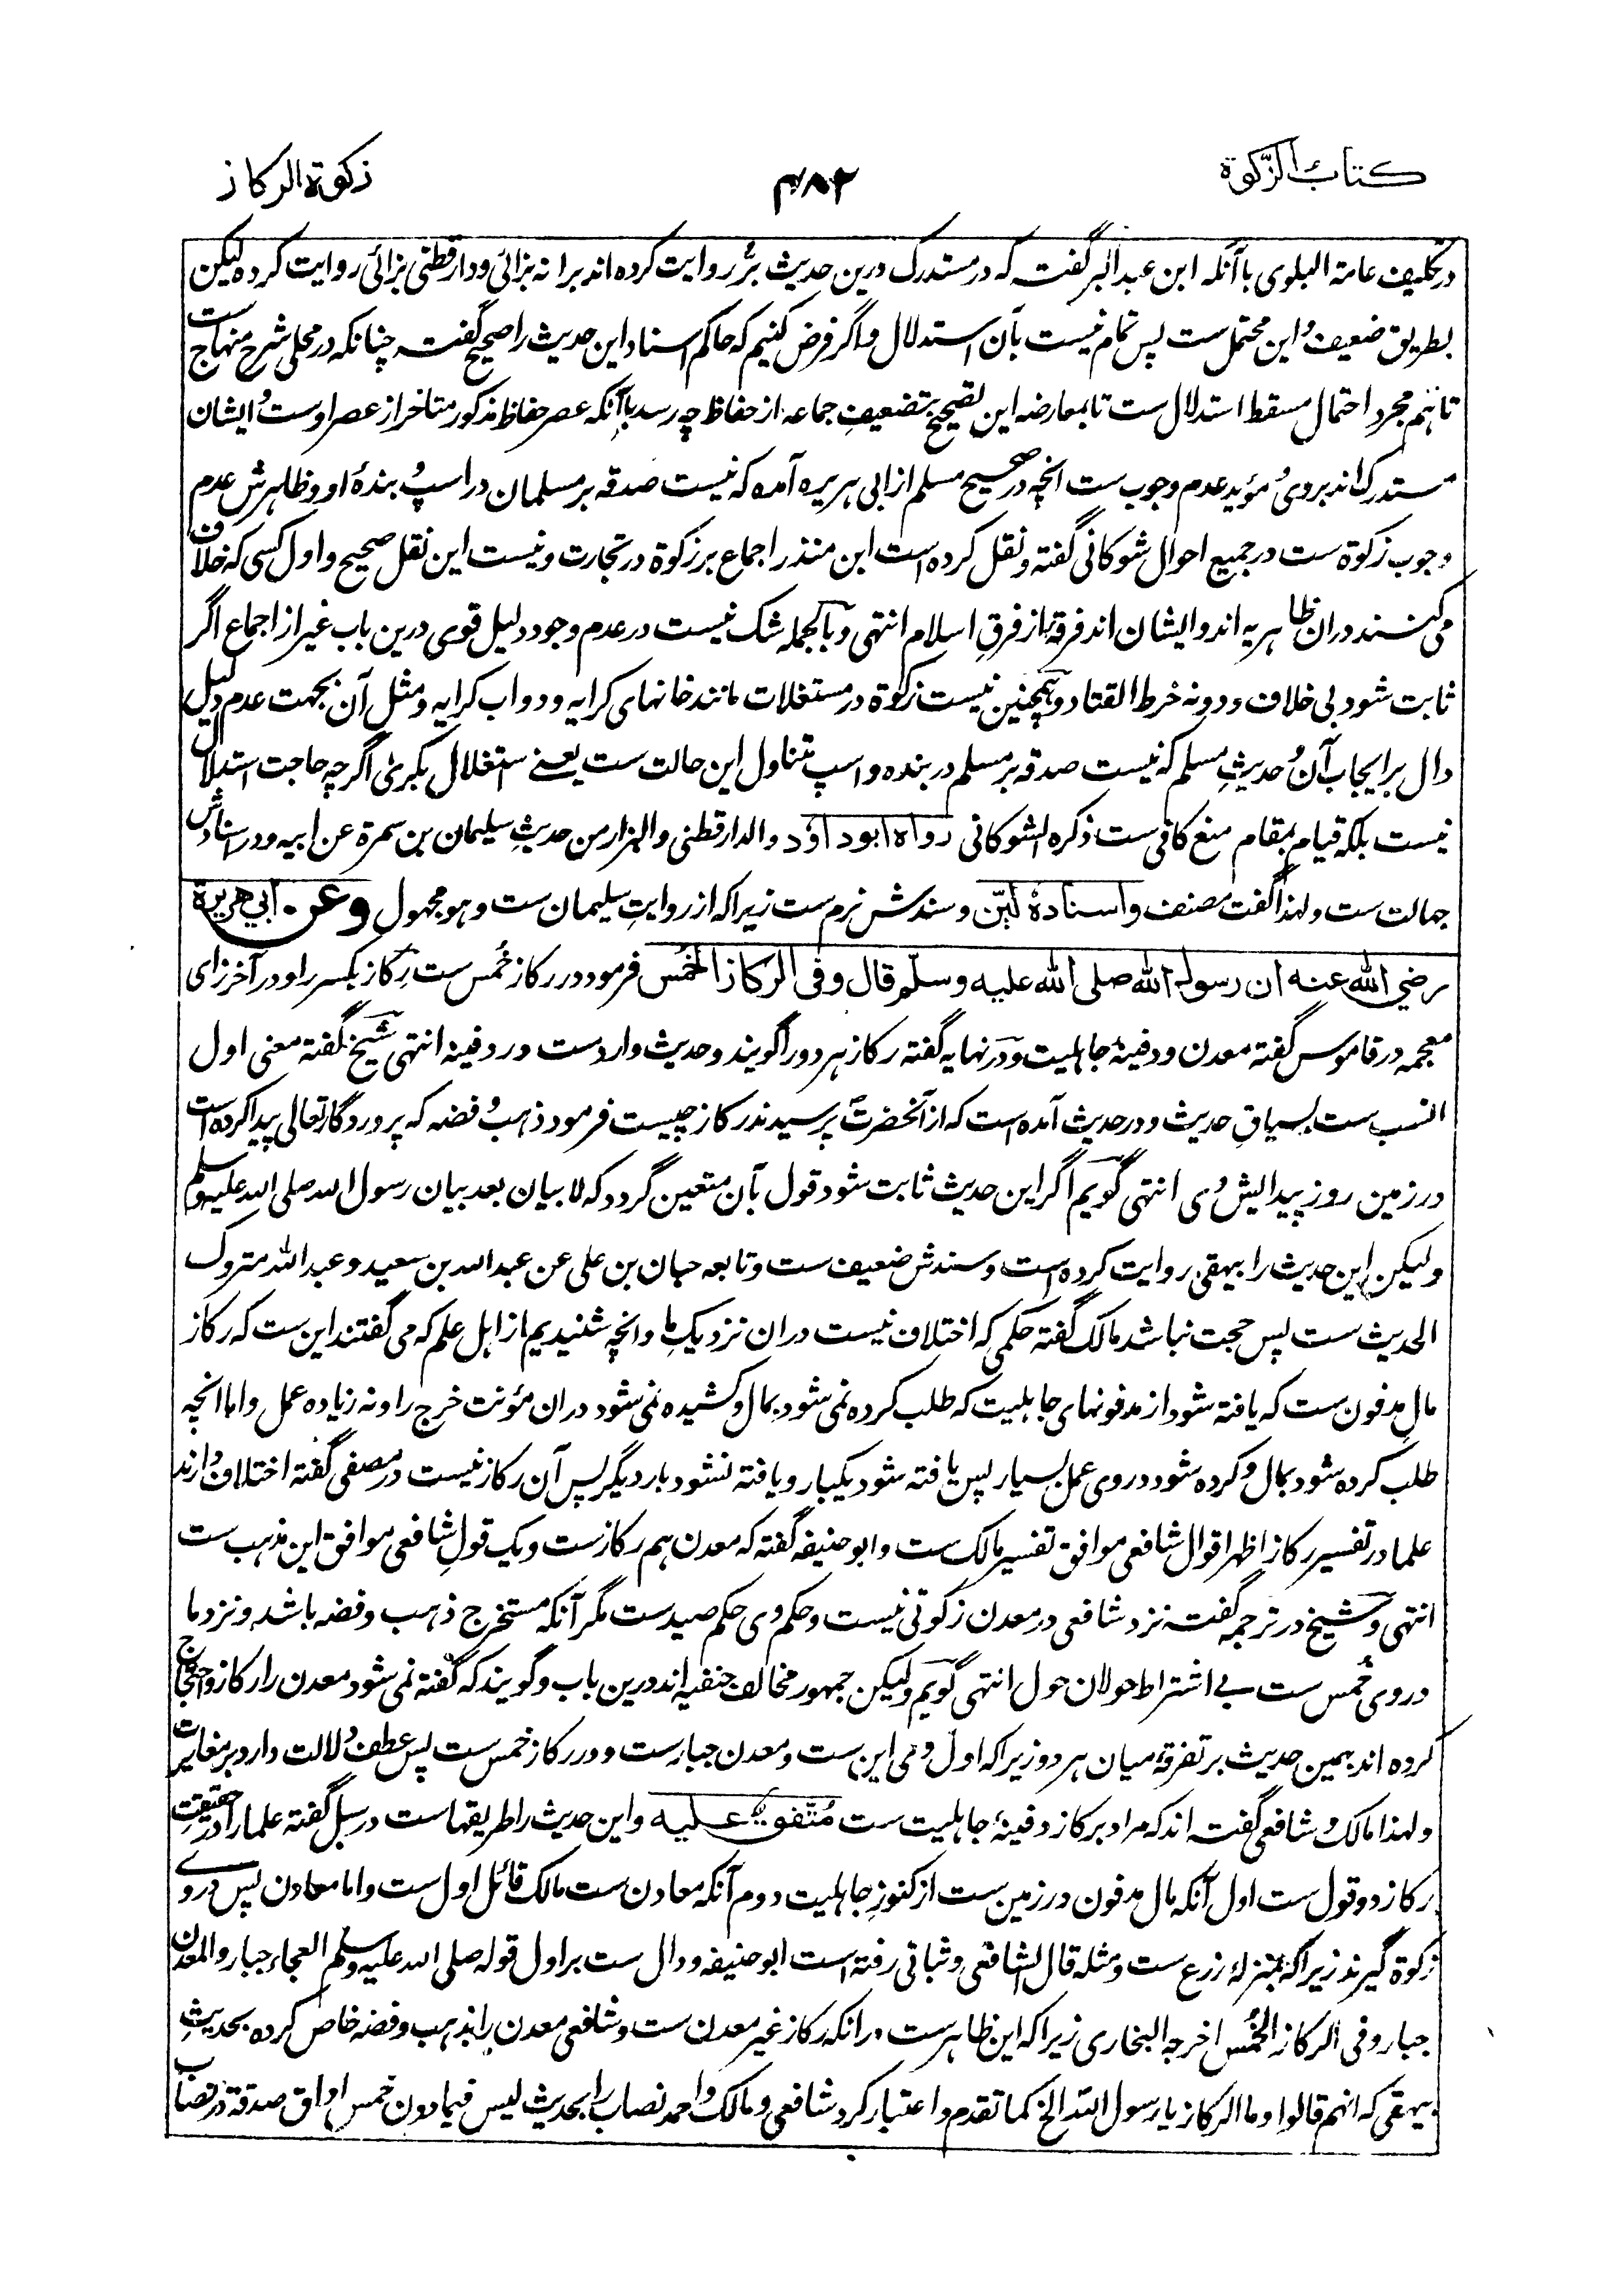 کتاب الزکوة
۴۸۲
زکوة الرکاز
در تکلیف عامة البلوی با آنکه ابن عبدالبر گفت که در مستدرک درین حدیث بُرّ روایت کرده اند برا نه بزائی و دارقطنی بزائی روایت کرده لیکن
بطریق ضعیف و این محتمل ست پس تمام نیست بآن استدلال و اگر فرض کنیم که حاکم اسناد این حدیث را صحیح گفته چنانکه در محلی شرح منهاج ست
تاہم مجرد احتمال مسقط استدلال ست تا بمعارضه این تصحیح بتضعیفِ جماعه از حفاظ چه رسد با آنکه عصر حفاظ مذکور متاخر از عصر اوست و ایشان
مستدرک اند بروی و مؤید عدم وجوب ست انچه در صحیح مسلم از ابی ہریره آمده که نیست صدقه بر مسلمان در اسپ و بندهٔ او و ظاہرش عدم
وجوب زکوة ست در جمیع احوال شوکانی گفته و نقل کرده است ابن منذر اجماع بر زکوة در تجارت و نیست این نقل صحیح و اول کسی که خلاف
می کنند دران ظاہریه اند و ایشان اند فرقهٔ از فرقِ اسلام انتہی و بالجمله شک نیست در عدم وجود دلیل قوی درین باب غیر از اجماع اگر
ثابت شود بی خلاف و دونه خرط القتاد و ہمچنین نیست زکوة در مستغلات مانند خانہای کرایه و دواب کرایه و مثل آن بجہت عدم دلیل
دال بر ایجاب آن و حدیثِ مسلم که نیست صدقه بر مسلم در بنده و اسپ متناول این حالت ست یعنے استغلال بکریٰ اگرچه حاجت استدلال
نیست بلکه قیام بمقام منع کافی ست ذکره الشوکانی رواه ابوداؤد والدارقطنی والبزار من حدیثِ سلیمان بن سمرة عن ابیه و در اسنادش
جہالت ست و لہذا گفت مصنف واسنادهٗ لیّن و سندش نرم ست زیراکه از روایتِ سلیمان ست وہو مجہول وعن ابي هريرة
رضي الله عنه ان رسول الله صلى الله عليه وسلم قال وفى الركاز الخُمُس فرمود در رکاز خُمس ست رِکاز بکسر را و در آخر زای
معجمه در قاموس گفته معدن و دفینهٔ جاہلیت و در نہایه گفته رکاز ہر دو را گویند و حدیث وارد ست در دفینه انتہی شیخ گفته معنی اول
انسب ست بسیاقِ حدیث و در حدیث آمده است که از آنحضرت پرسیدند رکاز چیست فرمود ذہب و فضه که پروردگار تعالی پیدا کرده است
در زمین روز پیدایش وی انتہی گویم اگر این حدیث ثابت شود قول بآن متعین گردد که لا بیان بعد بیان رسول الله صلی الله علیه وسلم
ولیکن این حدیث را بیہقی روایت کرده است و سندش ضعیف ست و تابعه حبان بن علی عن عبدالله بن سعید و عبدالله متروک
الحدیث ست پس حجت نباشد مالک گفته حکمی که اختلاف نیست دران نزدیکِ ما و انچه شنیدیم از اہل علم که می گفتند این ست که رکاز
مالِ مدفون ست که یافته شود از مدفونہای جاہلیت که طلب کرده نمی شود بمال و کشیده نمی شود دران مؤنت خرج را و نه زیاده عمل و اما انچه
طلب کرده شود بمال و کرده شود در وی عمل بسیار پس یافته شود یکبار و یافته نشود بار دیگر پس آن رکاز نیست در مصفی گفته اختلاف دارند
علما در تفسیر رکاز اظہر اقوال شافعی موافق تفسیر مالک ست و ابوحنیفه گفته که معدن ہم رکازست و یک قولِ شافعی موافق این مذہب ست
انتہی و شیخ در ترجمه گفت نزد شافعی در معدن زکوتی نیست و حکم وی حکم صیدست مگر آنکه مستخرج ذہب و فضه باشد و نزد ما
در وی خُمس ست بے اشتراط حولان حول انتہی گویم ولیکن جمہور مخالف حنفیه اند درین باب و گویند که گفته نمی شود معدن را رکاز و احتجاج
کرده اند بہمین حدیث بر تفرقه میان ہر دو زیراکه اول وی این ست و معدن جبارست و در رکاز خمس ست پس عطف دلالت دارد بر مغایرت
و لہذا مالک و شافعی گفته اند که مراد برکاز دفینهٔ جاہلیت ست مُتَّفَقٌ عليه و این حدیث را طریقہاست در سبل گفته علما را در حقیقت
رکاز دو قول ست اول آنکه مال مدفون در زمین ست از کنوزِ جاہلیت دوم آنکه معادن ست مالک قائل اول ست و اما معادن پس در وے
زکوة گیرند زیراکه بمنزلهٔ زرع ست و مثله قال الشافعی و ثبانی رفته است ابوحنیفه و دال ست بر اول قوله صلی الله علیه وسلم العجماء جبار والمعدن
جبار و فی الرکاز الخُمُس اخرجه البخاری زیراکه این ظاہر ست در انکه رکاز غیر معدن ست و شافعی معدن را بذہب و فضه خاص کرده بحدیثِ
بیہقی که انہم قالوا وما الرکاز یا رسول الله الخ کما تقدم و اعتبار کرد شافعی و مالک و احمد نصاب را بحدیث لیس فیما دون خمس اواق صدقة در نصاب